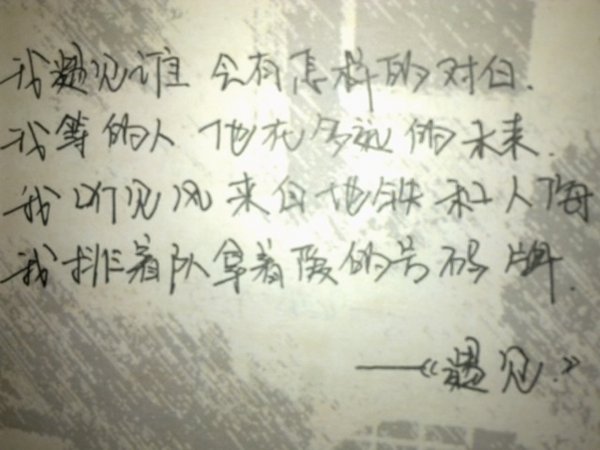 我遇见谁 会有怎样的对白.
我等的人 他在多远的未来.
我听见风来自地铁和人海
我排着队拿着爱的号码牌.
——《遇见.》